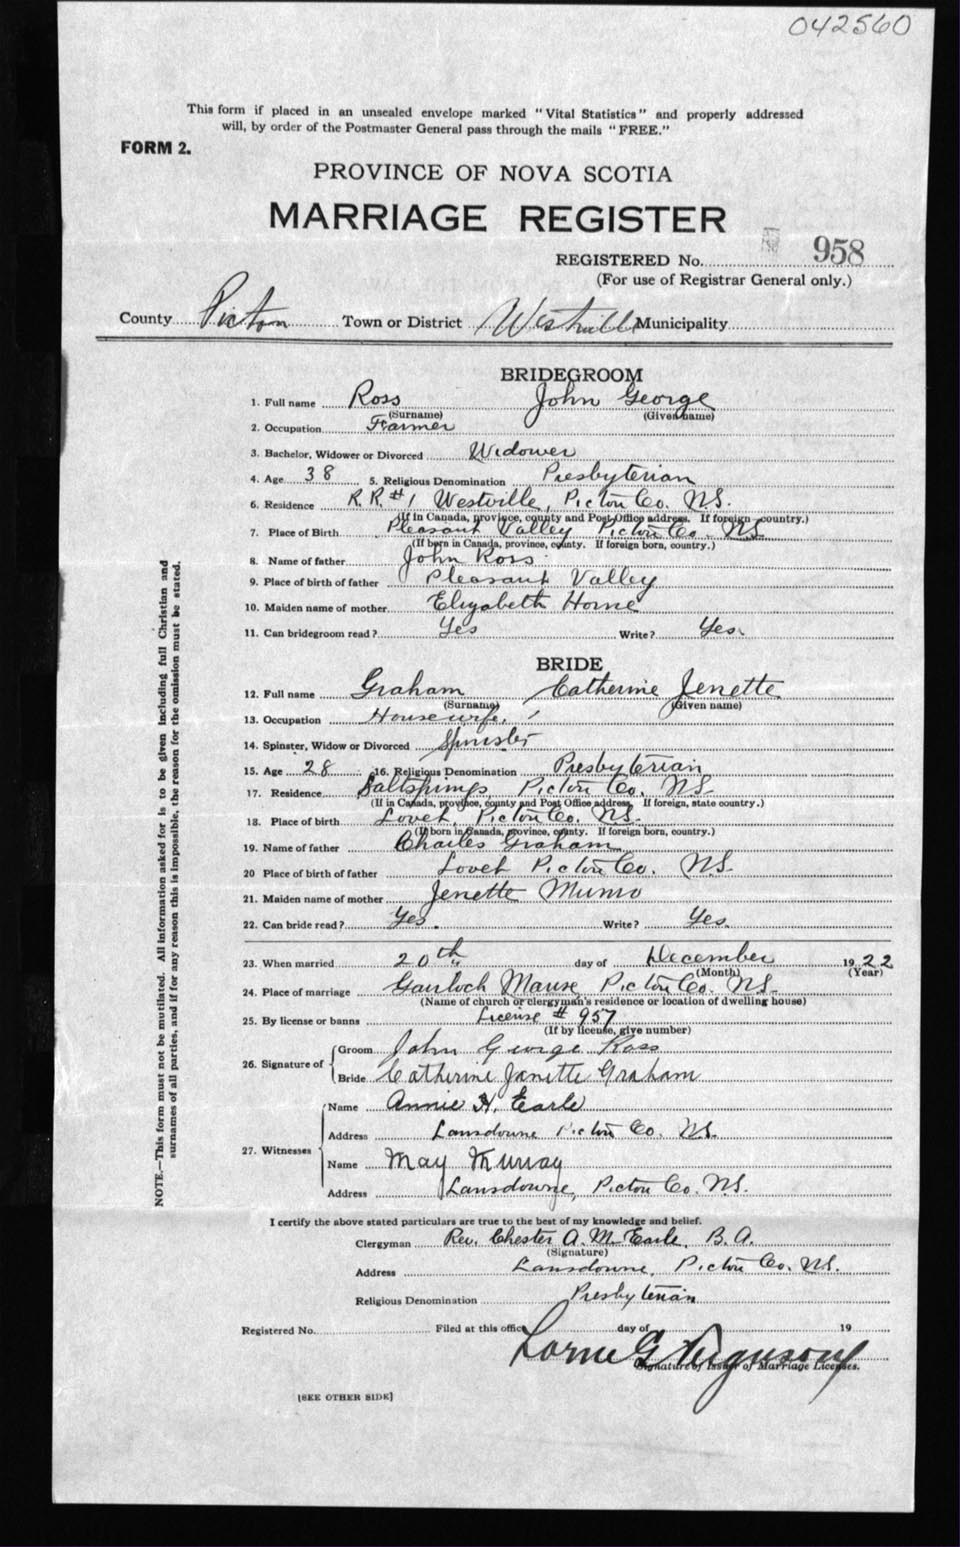 042560
This form if placed in an unsealed envelope marked "Vital Statistics" and properly addressed
will, by order of the Postmaster General pass through the mails "FREE."
FORM 2.
PROVINCE OF NOVA SCOTIA
MARRIAGE REGISTER
REGISTERED No. 958
(For use of Registrar General only.)
County Pictou Town or District Westville Municipality
BRIDEGROOM
1. Full name Ross John George
(Surname) (Given name)
2. Occupation Farmer
3. Bachelor, Widower or Divorced Widower
4. Age 38 5. Religious Denomination Presbyterian
6. Residence R.R. #1 Westville, Pictou Co. N.S.
(If in Canada, province, county and Post Office address. If foreign country.)
7. Place of Birth Pleasant Valley Pictou Co. NS
(If born in Canada, province, county. If foreign born, country.)
8. Name of father John Ross
9. Place of birth of father Pleasant Valley
10. Maiden name of mother Elizabeth Horne
11. Can bridegroom read? Yes Write? Yes.
BRIDE
12. Full name Graham Catherine Jenette
(Surname) (Given name)
13. Occupation Housewife.
14. Spinster, Widow or Divorced Spinster
15. Age 28 16. Religious Denomination Presbyterian
17. Residence Saltsprings, Pictou Co. N.S.
(If in Canada, province, county and Post Office address. If foreign, state country.)
18. Place of birth Lovet, Pictou Co. N.S.
(If born in Canada, province, county. If foreign born, country.)
19. Name of father Charles Graham
20 Place of birth of father Lovet Pictou Co. N.S.
21. Maiden name of mother Jenette Munro
22. Can bride read? Yes. Write? Yes.
23. When married 20th day of December 1922
(Month) (Year)
24. Place of marriage Gairloch Manse, Pictou Co. N.S.
(Name of church or clergyman's residence or location of dwelling house)
25. By license or banns License # 957
(If by license, give number)
26. Signature of Groom John George Ross
Bride Catherine Janette Graham
27. Witnesses Name Annie H. Earle
Address Lansdowne Pictou Co. N.S.
Name May Murray
Address Lansdowne, Pictou Co. N.S.
I certify the above stated particulars are true to the best of my knowledge and belief.
Clergyman Rev. Chester A. M. Earle, B.A.
(Signature)
Address Lansdowne, Pictou Co. N.S.
Religious Denomination Presbyterian
Registered No. Filed at this office day of 19
Lorne G Ferguson
Signature of Issuer of Marriage Licenses.
[SEE OTHER SIDE]
NOTE.—This form must not be mutilated. All information asked for is to be given including full Christian and
surnames of all parties, and if for any reason this is impossible, the reason for the omission must be stated.